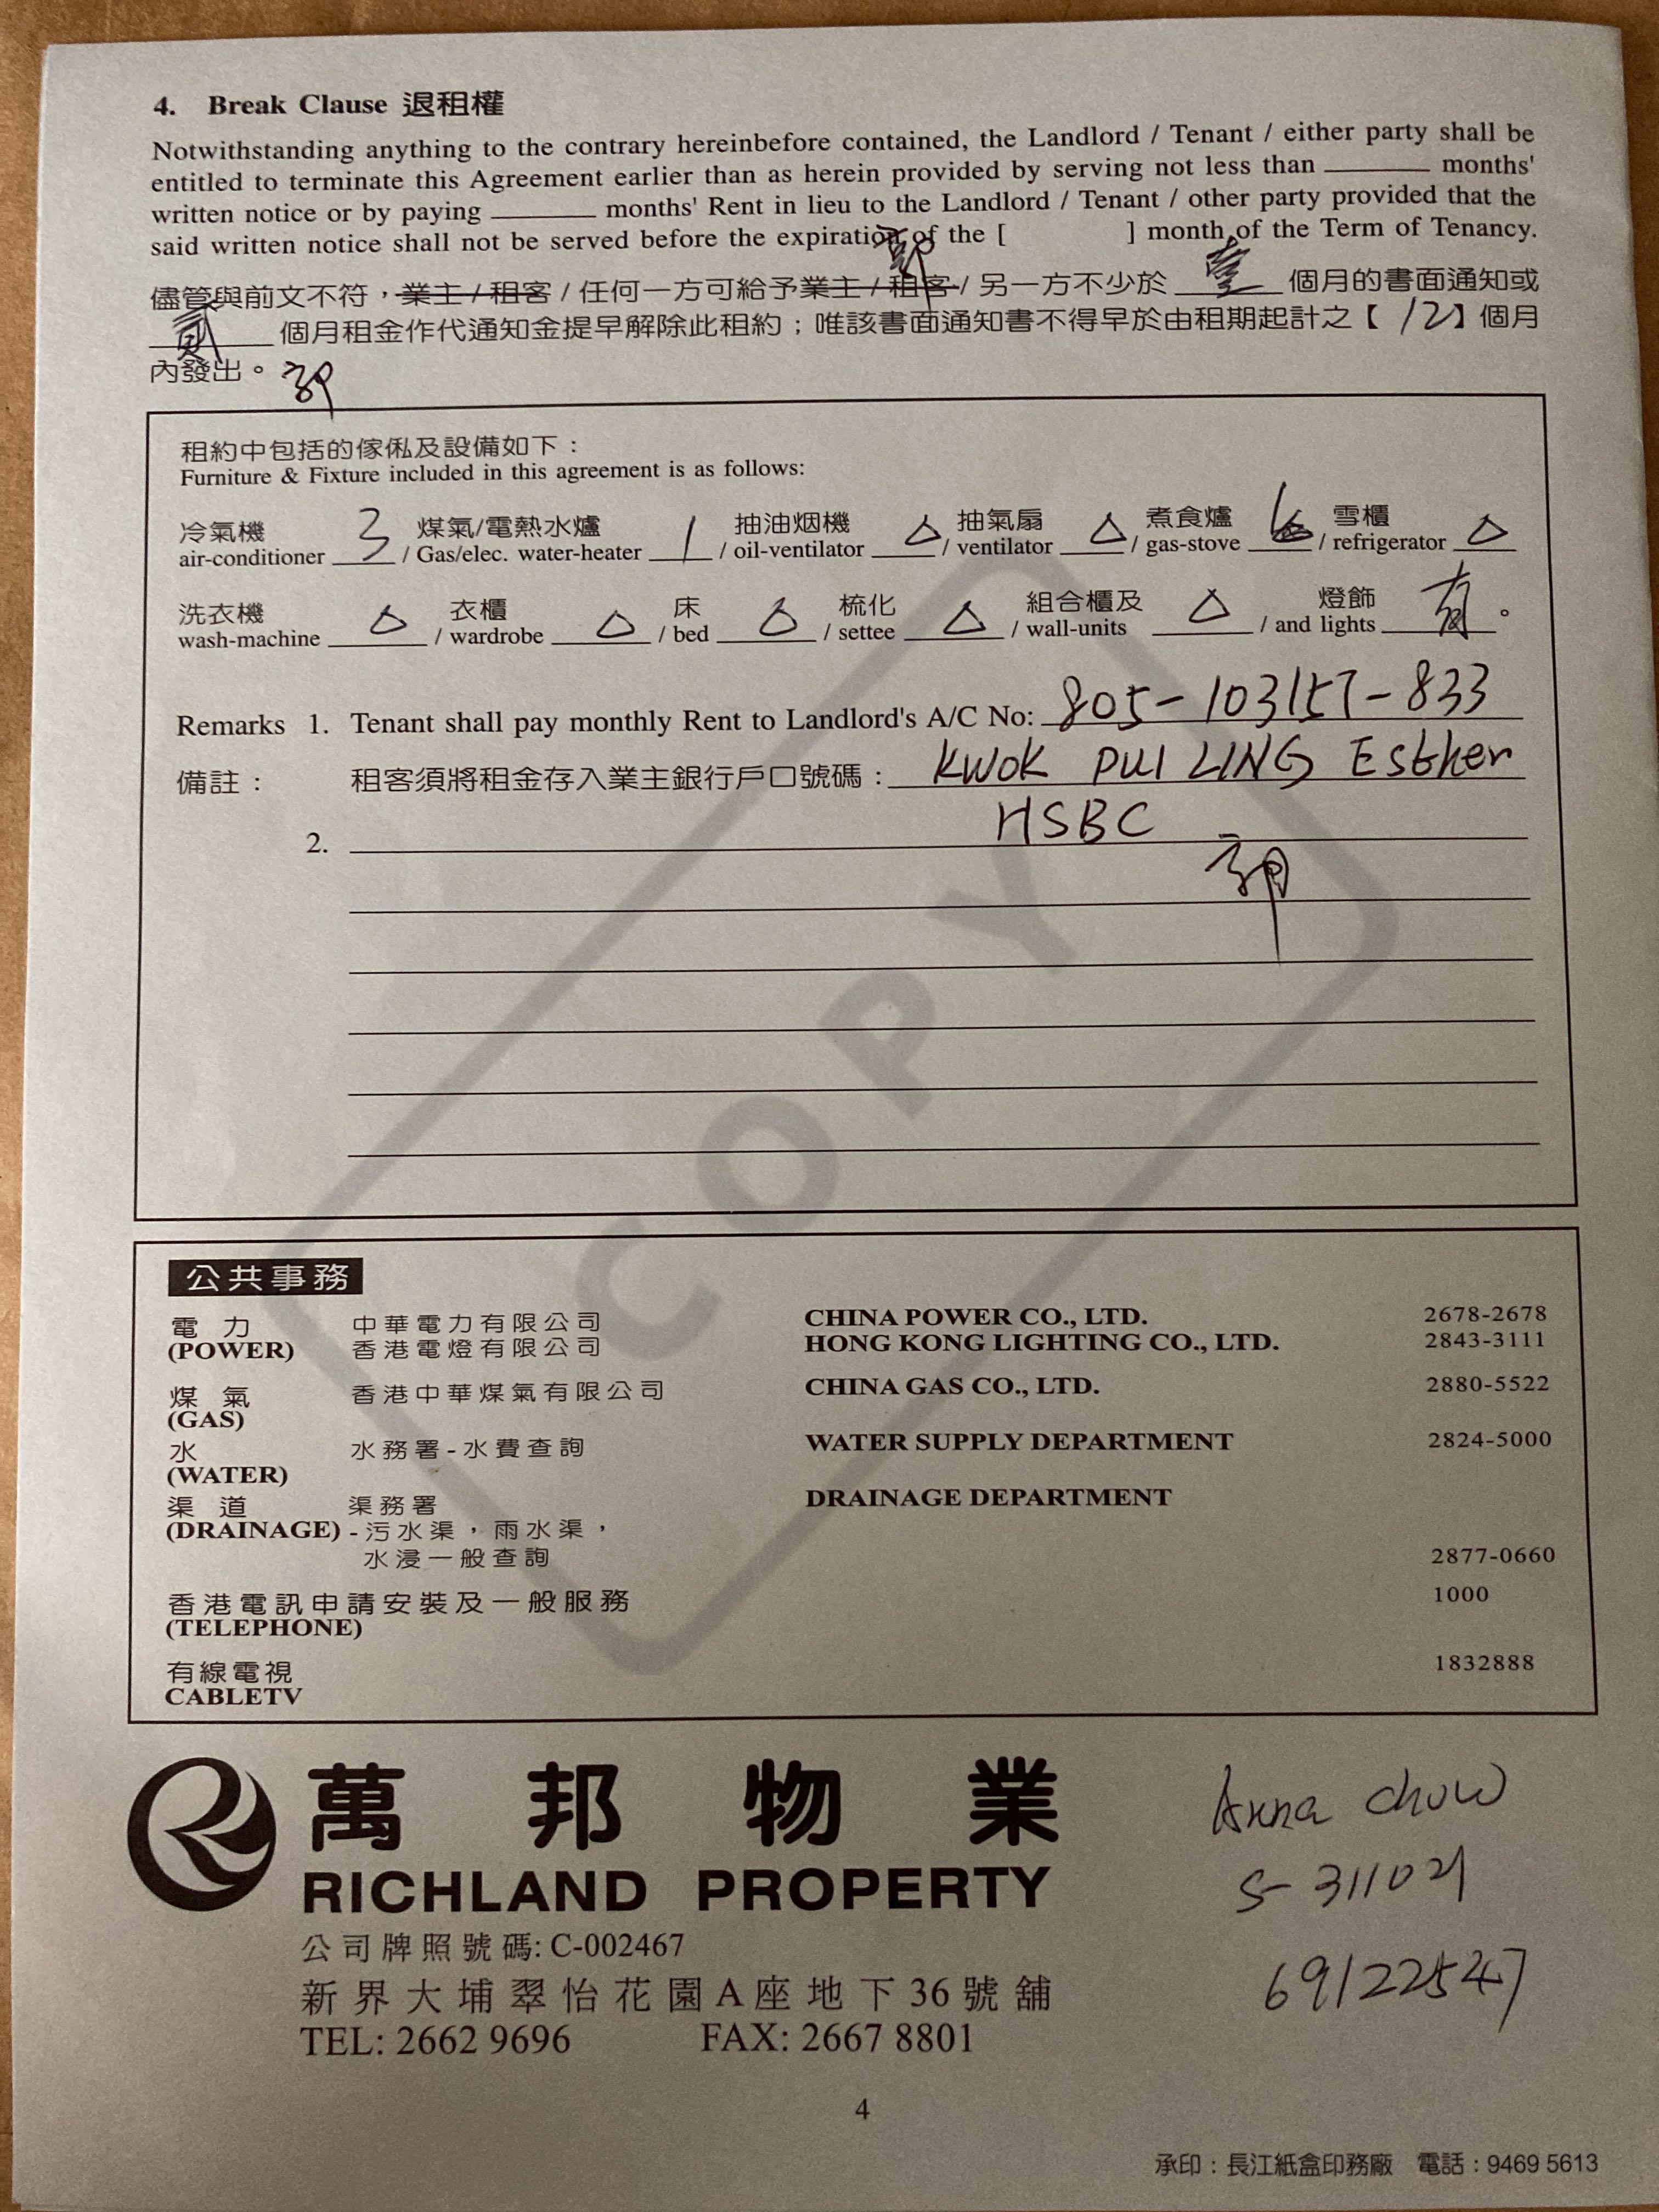 4. Break Clause 退租權
Notwithstanding anything to the contrary hereinbefore contained, the Landlord / Tenant / either party shall be
entitled to terminate this Agreement earlier than as herein provided by serving not less than ________ months'
written notice or by paying ________ months' Rent in lieu to the Landlord / Tenant / other party provided that the
said written notice shall not be served before the expiration of the [ ] month of the Term of Tenancy.
儘管與前文不符，業主 / 租客 / 任何一方可給予業主 / 租客 / 另一方不少於 壹 個月的書面通知或
貳 個月租金作代通知金提早解除此租約；唯該書面通知書不得早於由租期起計之【 12 】個月
內發出。
租約中包括的傢俬及設備如下：
Furniture & Fixture included in this agreement is as follows:
冷氣機 3 煤氣/電熱水爐 1 抽油烟機 △ 抽氣扇 △ 煮食爐 雪櫃 △
air-conditioner / Gas/elec. water-heater / oil-ventilator / ventilator / gas-stove / refrigerator
洗衣機 △ 衣櫃 △ 床 △ 梳化 △ 組合櫃及 △ 燈飾 有。
wash-machine / wardrobe / bed / settee / wall-units / and lights
Remarks 1. Tenant shall pay monthly Rent to Landlord's A/C No: 805-103157-833
備註： 租客須將租金存入業主銀行戶口號碼： KWOK PUI LING Esther
HSBC
2.
公共事務
電力 中華電力有限公司 CHINA POWER CO., LTD. 2678-2678
(POWER) 香港電燈有限公司 HONG KONG LIGHTING CO., LTD. 2843-3111
煤氣 香港中華煤氣有限公司 CHINA GAS CO., LTD. 2880-5522
(GAS)
水 水務署-水費查詢 WATER SUPPLY DEPARTMENT 2824-5000
(WATER)
渠道 渠務署 DRAINAGE DEPARTMENT
(DRAINAGE) -污水渠，雨水渠，
水浸一般查詢 2877-0660
香港電訊申請安裝及一般服務 1000
(TELEPHONE)
有線電視 1832888
CABLETV
COPY
萬邦物業
RICHLAND PROPERTY
公司牌照號碼: C-002467
新界大埔翠怡花園A座地下36號舖
TEL: 2662 9696 FAX: 2667 8801
Anna Chow
S-311021
69122547
4
承印：長江紙盒印務廠 電話：9469 5613